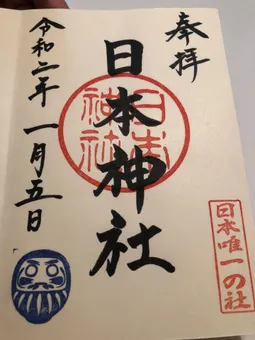 奉拝
日本神社
令和二年一月五日
日本唯一の社